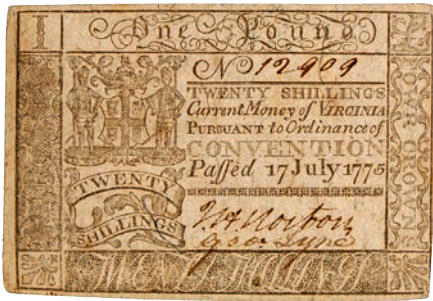 I One Pound
No 12909
TWENTY SHILLINGS
Current Money of VIRGINIA
PURSUANT to Ordinance of
CONVENTION
Paſſed 17 July 1775
TWENTY
SHILLINGS
FOUR CROWNS